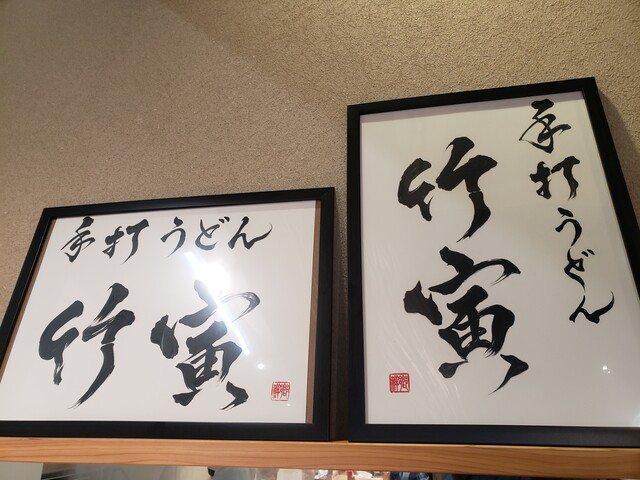 手打うどん
竹寅
手打うどん
竹寅